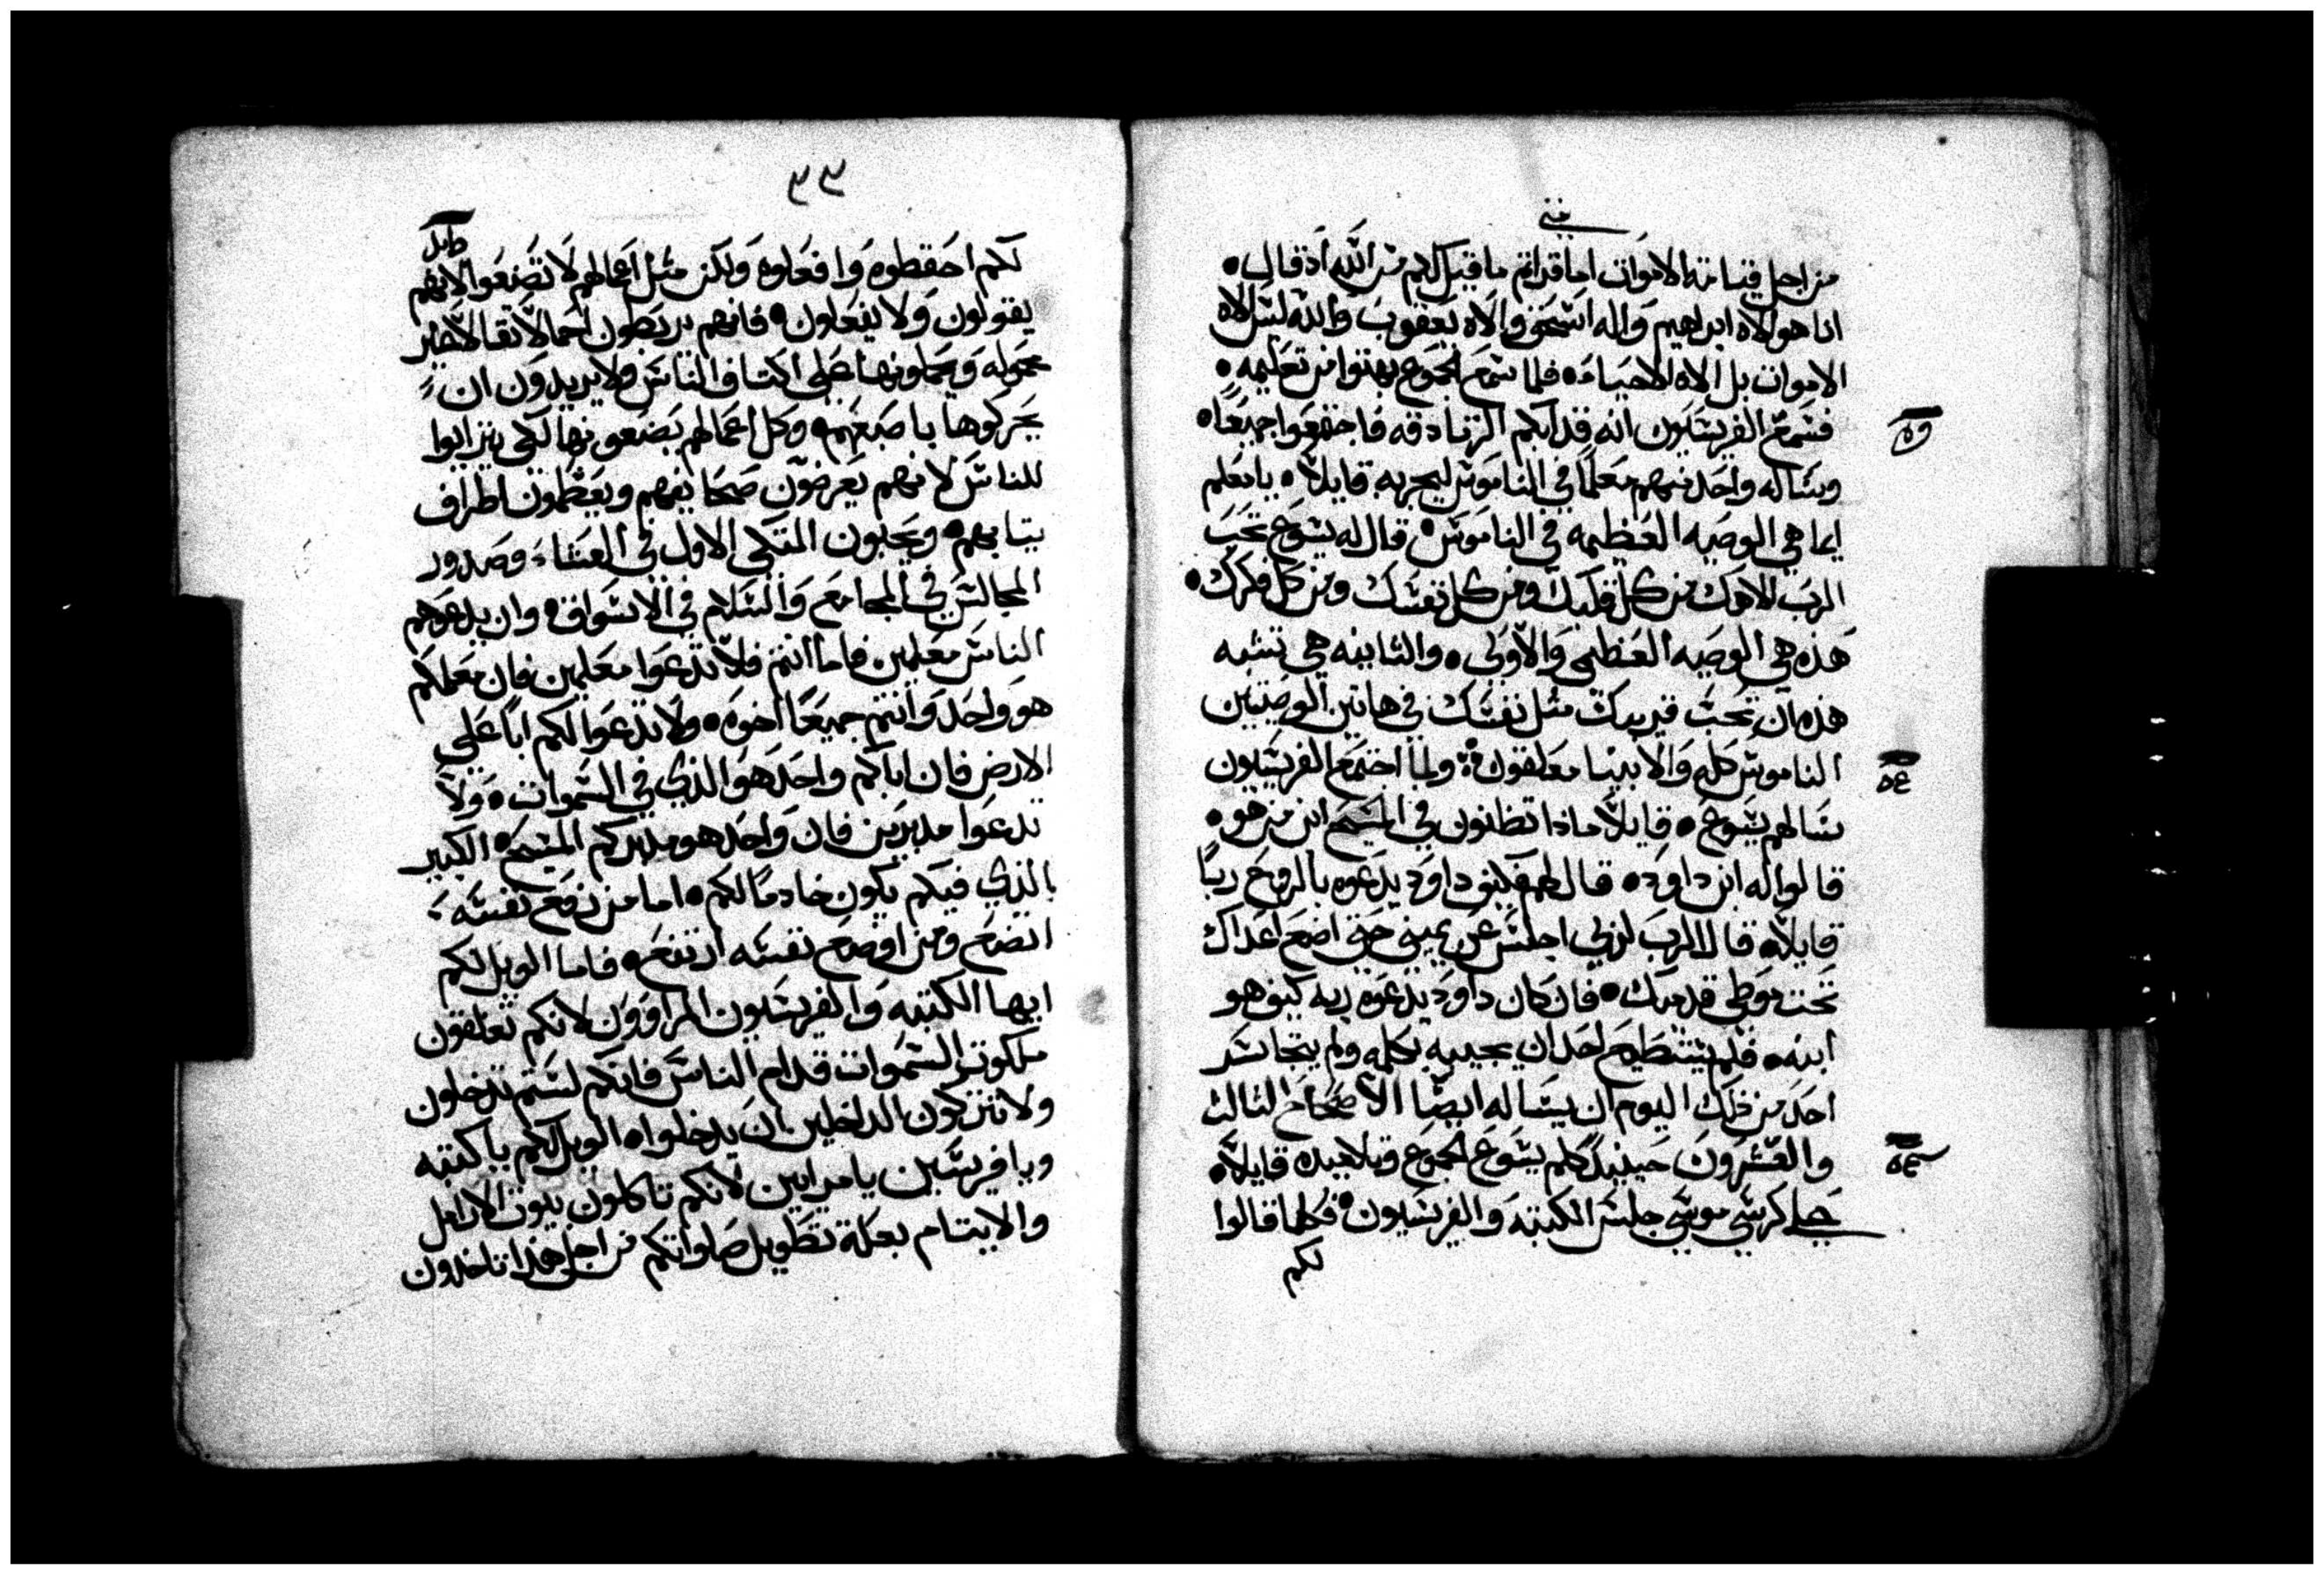 متى
من اجل قيامة الاموات اما قراتم ما قيل لكم من الله اذ قال •
انا هو الاه ابراهيم واله اسحق والاه يعقوب والله ليس الاه
الاموات بل الاه الاحياء • فلما سمع الجموع بهتوا من تعليمه •
فسمع الفريسيون انه قد ابكم الزنادقه فاجتمعوا جميعا •
وساله واحد منهم معلما في الناموس ليجربه قايلا • يا معلم
ايما هي الوصيه العظيمه في الناموس • قال له يسوع تحب
الرب الاهك من كل قلبك ومن كل نفسك ومن كل فكرك •
هذه هي الوصيه العظمى والاولى • والثانيه هي تشبه
هذه ان تحب قريبك مثل نفسك في هاتين الوصيتين
الناموس كله والانبيا معلقون • ولما اجتمع الفريسيون
سالهم يسوع • قايلا ماذا تظنون في المسيح ابن من هو •
قالوا له ابن داوود • قال لهم فكيف داوود يدعوه بالروح ربا
قايلا • قال الرب لربي اجلس عن يميني حتى اضع اعداك
تحت موطي قدميك • فان كان داوود يدعوه ربه كيف هو
ابنه • فلم يستطيع احد ان يجيبه بكلمه ولم يتجاسر
احد من ذلك اليوم ان يساله ايضا الاصحاح الثالث
والعشرون حينيذ كلم يسوع الجموع وتلاميذه قايلا •
على كرسي موسي جلس الكتبه والفريسيون • فكلما قالوا
لكم
٣٣
لكم احفظوه وافعلوه ولكن مثل اعمالهم لا تصنعوا لانهم
يقولون ولا يفعلون • فانهم يربطون احمالا ثقالا غير
محموله ويحملونها على اكتاف الناس ولا يريدون ان
يحركوها باصبعهم • وكل اعمالهم يصنعونها لكي يترايوا
للناس لانهم يعرضون صحايفهم ويعظمون اطراف
ثيابهم • ويحبون المتكى الاول في العشاء وصدور
المجالس في المجامع والسلام في الاسواق • وان يدعوهم
الناس معلمين فاما انتم فلا تدعوا معلمين فان معلمكم
هو واحد وانتم جميعا اخوه • ولا تدعوا لكم ابا على
الارض فان اباكم واحد هو الذي في السموات • ولا
تدعوا مدبرين فان واحد هو مدبركم المسيح • الكبير
الذي فيكم يكون خادما لكم • اما من رفع نفسه
اتضع ومن اوضع نفسه ارتفع • فاما الويل لكم
ايها الكتبه والفريسيون المراوون لانكم تغلقون
ملكوت السموات قدام الناس فانكم لستم تدخلون
ولا تتركون الداخلين ان يدخلوا • الويل لكم يا كتبه
ويا فريسين يا مرايين لانكم تاكلون بيوت الارامل
والايتام بعلة تطويل صلواتكم من اجل هذا تاخدون